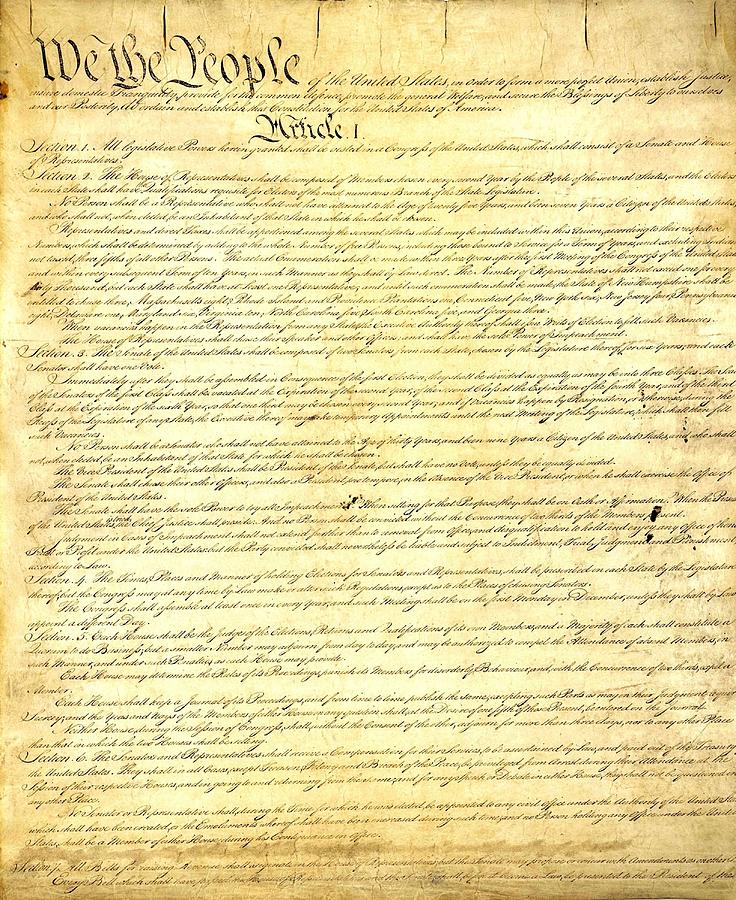 We the People of the United States, in Order to form a more perfect Union, establish Justice,
insure domestic Tranquility, provide for the common defence, promote the general Welfare, and secure the Blessings of Liberty to ourselves
and our Posterity, do ordain and establish this Constitution for the United States of America.
Article. I.
Section. 1. All legislative Powers herein granted shall be vested in a Congress of the United States, which shall consist of a Senate and House
of Representatives.
Section. 2. The House of Representatives shall be composed of Members chosen every second Year by the People of the several States, and the Electors
in each State shall have the Qualifications requisite for Electors of the most numerous Branch of the State Legislature.
No Person shall be a Representative who shall not have attained to the Age of twenty five Years, and been seven Years a Citizen of the United States,
and who shall not, when elected, be an Inhabitant of that State in which he shall be chosen.
Representatives and direct Taxes shall be apportioned among the several States which may be included within this Union, according to their respective
Numbers, which shall be determined by adding to the whole Number of free Persons, including those bound to Service for a Term of Years, and excluding Indians
not taxed, three fifths of all other Persons. The actual Enumeration shall be made within three Years after the first Meeting of the Congress of the United States,
and within every subsequent Term of ten Years, in such Manner as they shall by Law direct. The Number of Representatives shall not exceed one for every
thirty Thousand, but each State shall have at Least one Representative; and until such enumeration shall be made, the State of New Hampshire shall be
entitled to chuse three, Massachusetts eight, Rhode-Island and Providence Plantations one, Connecticut five, New-York six, New Jersey four, Pennsylvania
eight, Delaware one, Maryland six, Virginia ten, North Carolina five, South Carolina five, and Georgia three.
When vacancies happen in the Representation from any State, the Executive Authority thereof shall issue Writs of Election to fill such Vacancies.
The House of Representatives shall chuse their Speaker and other Officers; and shall have the sole Power of Impeachment.
Section. 3. The Senate of the United States shall be composed of two Senators from each State, chosen by the Legislature thereof, for six Years; and each
Senator shall have one Vote.
Immediately after they shall be assembled in Consequence of the first Election, they shall be divided as equally as may be into three Classes. The Seats
of the Senators of the first Class shall be vacated at the Expiration of the second Year, of the second Class at the Expiration of the fourth Year, and of the third
Class at the Expiration of the sixth Year, so that one third may be chosen every second Year; and if Vacancies happen by Resignation, or otherwise, during the
Recess of the Legislature of any State, the Executive thereof may make temporary Appointments until the next Meeting of the Legislature, which shall then fill
such Vacancies.
No Person shall be a Senator who shall not have attained to the Age of thirty Years, and been nine Years a Citizen of the United States, and who shall
not, when elected, be an Inhabitant of that State for which he shall be chosen.
The Vice President of the United States shall be President of the Senate, but shall have no Vote, unless they be equally divided.
The Senate shall chuse their other Officers, and also a President pro tempore, in the Absence of the Vice President, or when he shall exercise the Office of
President of the United States.
The Senate shall have the sole Power to try all Impeachments. When sitting for that Purpose, they shall be on Oath or Affirmation. When the President
of the United States is tried, the Chief Justice shall preside: And no Person shall be convicted without the Concurrence of two thirds of the Members present.
Judgment in Cases of Impeachment shall not extend further than to removal from Office, and disqualification to hold and enjoy any Office of honor,
Trust or Profit under the United States: but the Party convicted shall nevertheless be liable and subject to Indictment, Trial, Judgment and Punishment,
according to Law.
Section. 4. The Times, Places and Manner of holding Elections for Senators and Representatives, shall be prescribed in each State by the Legislature
thereof; but the Congress may at any time by Law make or alter such Regulations, except as to the Places of chusing Senators.
The Congress shall assemble at least once in every Year, and such Meeting shall be on the first Monday in December, unless they shall by Law
appoint a different Day.
Section. 5. Each House shall be the Judge of the Elections, Returns and Qualifications of its own Members, and a Majority of each shall constitute a
Quorum to do Business; but a smaller Number may adjourn from day to day, and may be authorized to compel the Attendance of absent Members, in
such Manner, and under such Penalties as each House may provide.
Each House may determine the Rules of its Proceedings, punish its Members for disorderly Behaviour, and, with the Concurrence of two thirds, expel a
Member.
Each House shall keep a Journal of its Proceedings, and from time to time publish the same, excepting such Parts as may in their Judgment require
Secrecy; and the Yeas and Nays of the Members of either House on any question shall, at the Desire of one fifth of those Present, be entered on the Journal.
Neither House, during the Session of Congress, shall, without the Consent of the other, adjourn for more than three days, nor to any other Place
than that in which the two Houses shall be sitting.
Section. 6. The Senators and Representatives shall receive a Compensation for their Services, to be ascertained by Law, and paid out of the Treasury
the United States. They shall in all Cases, except Treason, Felony and Breach of the Peace, be privileged from Arrest during their Attendance at the
Session of their respective Houses, and in going to and returning from the same; and for any Speech or Debate in either House, they shall not be questioned in
any other Place.
No Senator or Representative shall, during the Time for which he was elected, be appointed to any civil Office under the Authority of the United States,
which shall have been created, or the Emoluments whereof shall have been encreased during such time; and no Person holding any Office under the United
States, shall be a Member of either House during his Continuance in Office.
Section. 7. All Bills for raising Revenue shall originate in the House of Representatives; but the Senate may propose or concur with Amendments as on other
Every Bill which shall have passed the House of Representatives and the Senate, shall, before it become a Law, be presented to the President of the